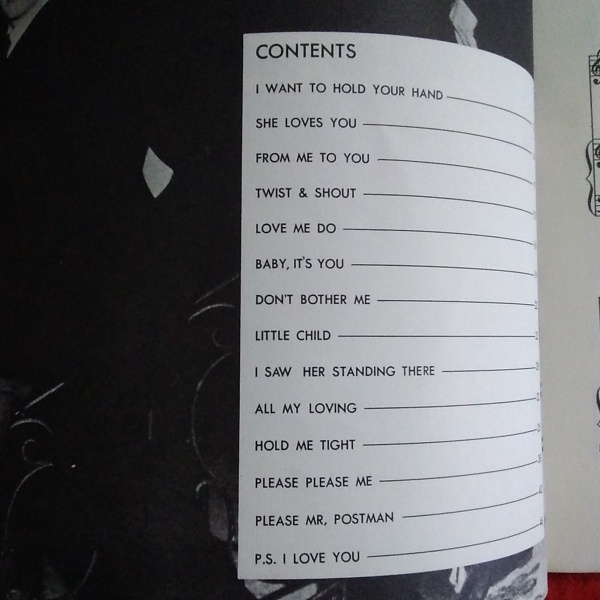 CONTENTS
I WANT TO HOLD YOUR HAND
SHE LOVES YOU
FROM ME TO YOU
TWIST & SHOUT
LOVE ME DO
BABY, IT'S YOU
DON'T BOTHER ME
LITTLE CHILD
I SAW HER STANDING THERE
ALL MY LOVING
HOLD ME TIGHT
PLEASE PLEASE ME
PLEASE MR, POSTMAN
P.S. I LOVE YOU